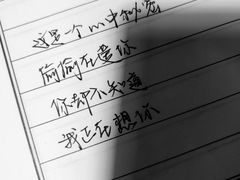 这是个心中秘密
偷偷在喜你
你却不知道
我正在想你